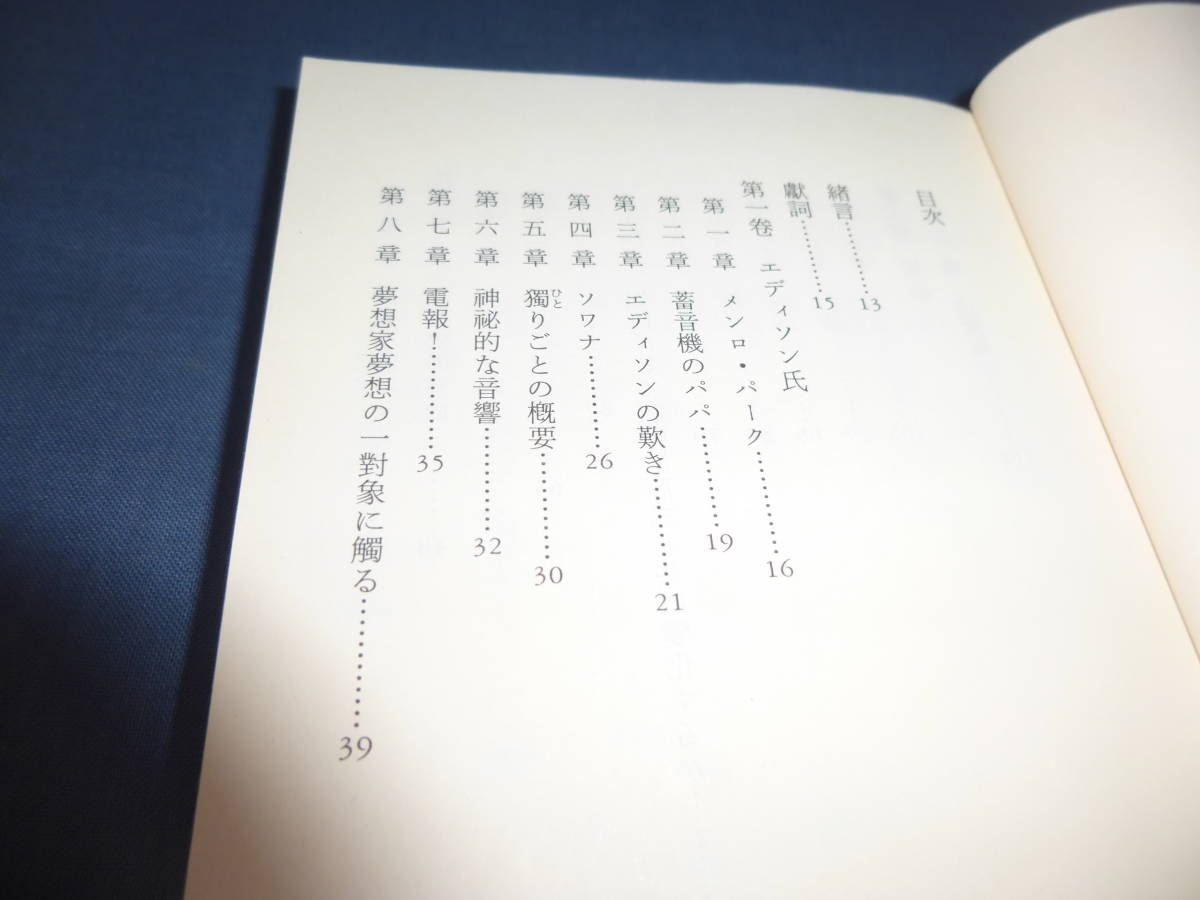 目次
緒言…………13
獻詞…………15
第一卷 エディソン氏
第一章 メンロ・パーク…………16
第二章 蓄音機のパパ…………19
第三章 エディソンの歎き…………21
第四章 ソワナ…………26
第五章 獨りごとの概要…………30
ひと
第六章 神祕的な音響…………32
第七章 電報!…………35
第八章 夢想家夢想の一對象に觸る…………39